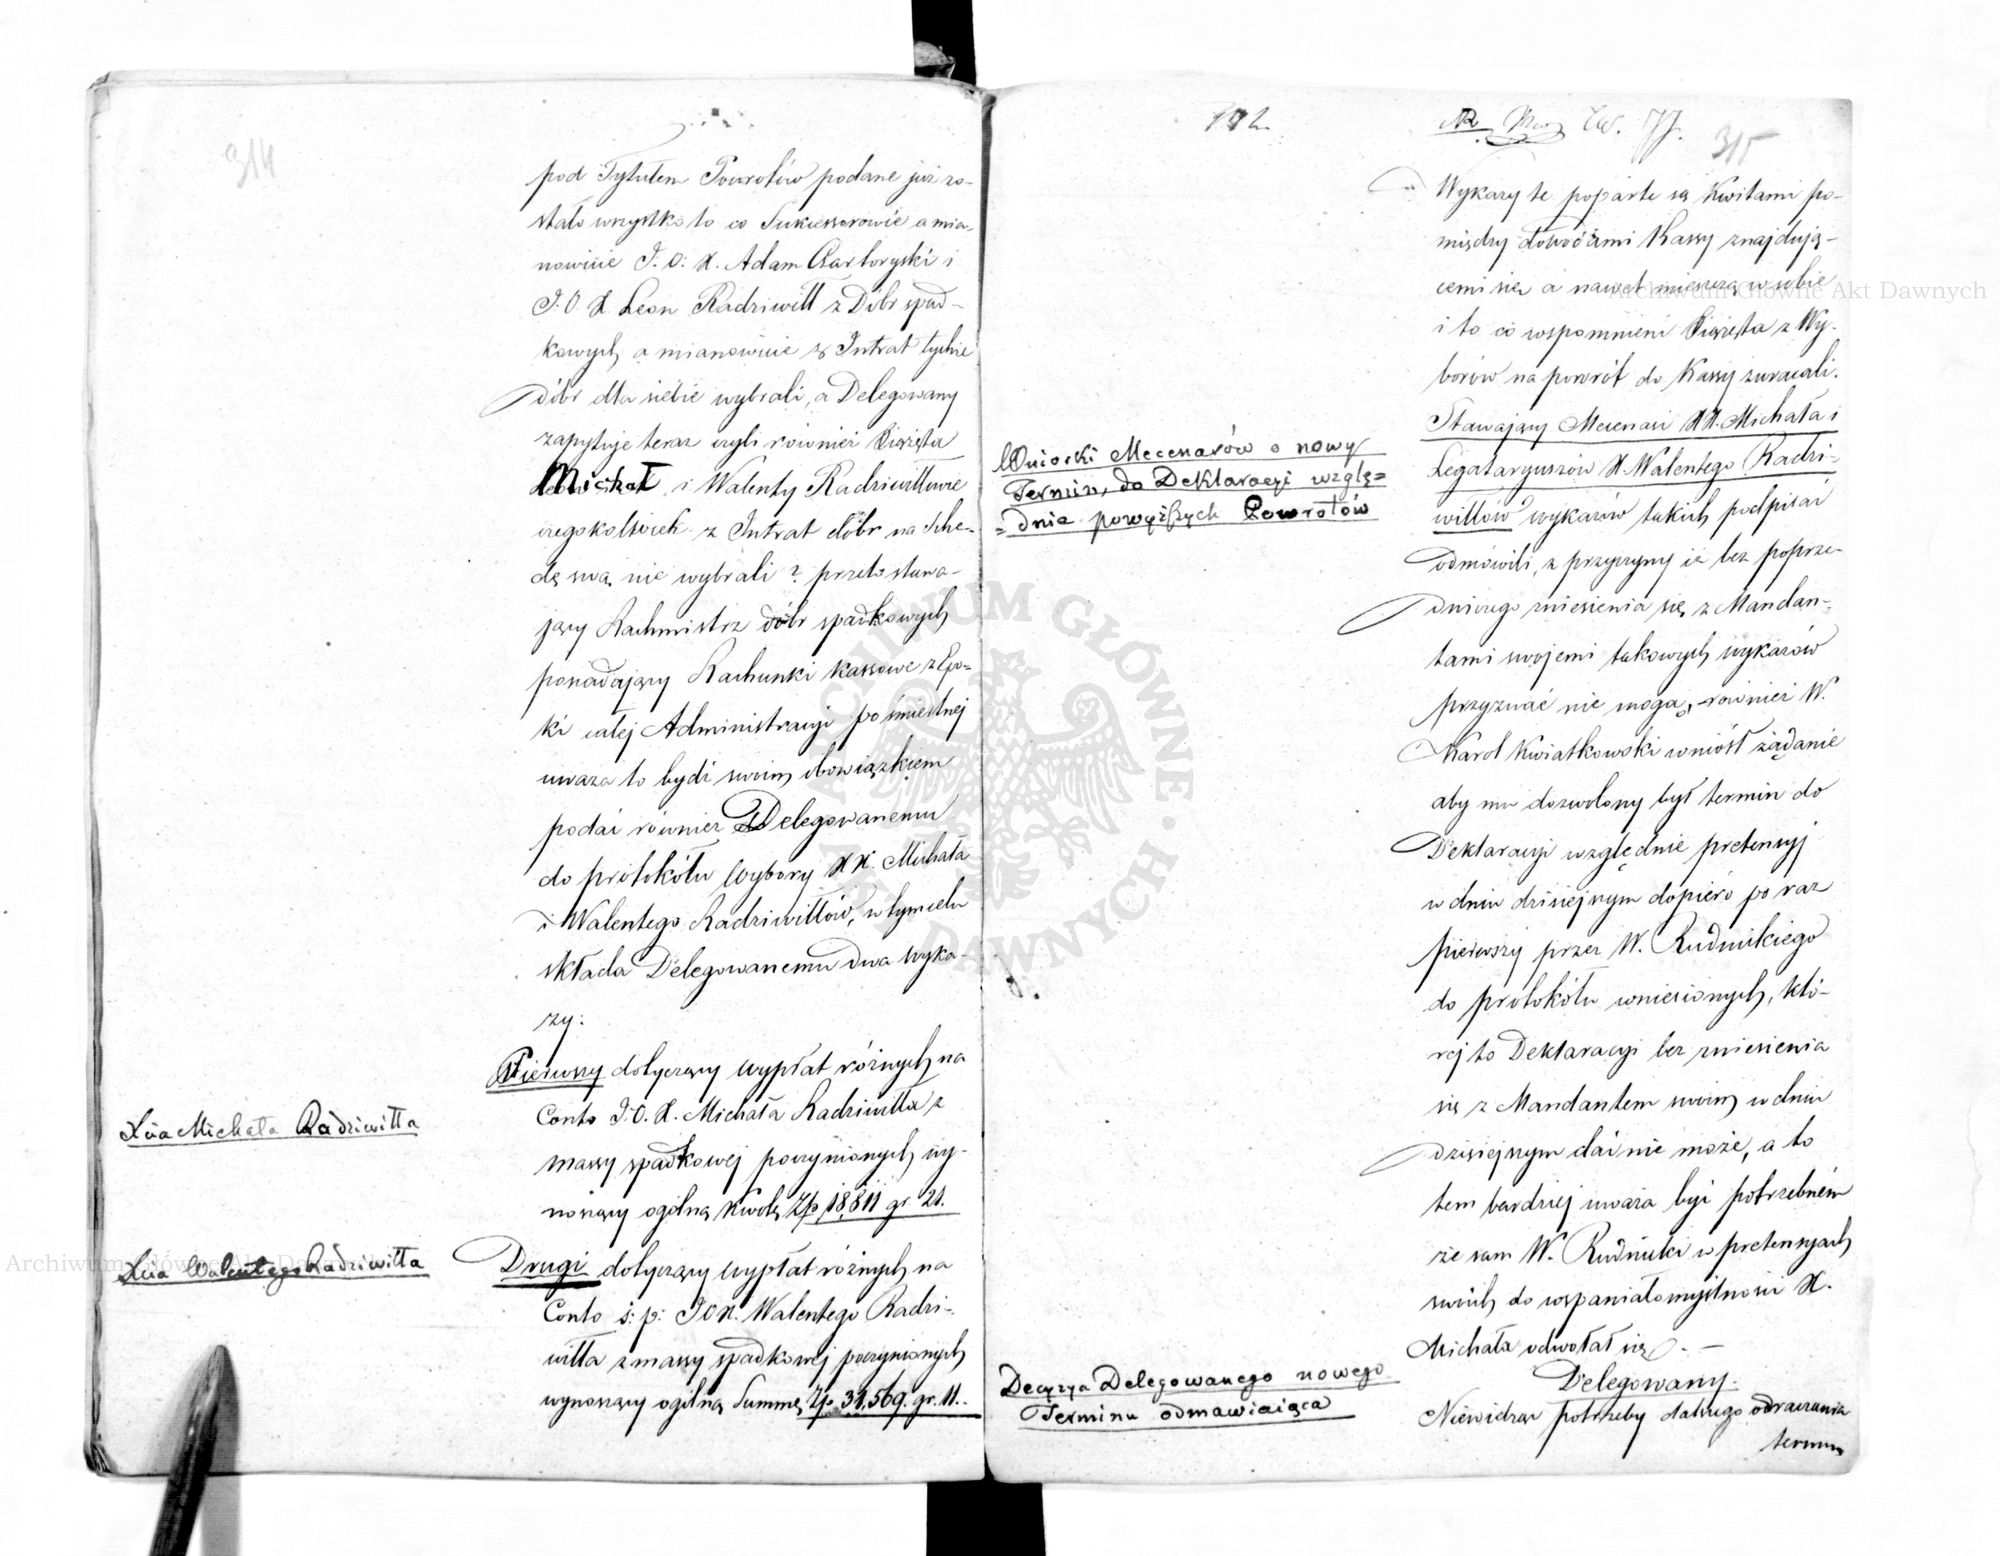 314
pod Tytułem Powrotów podane już zo-
stało wszystko to co Sukcessorowie a mia-
nowicie J. O. X. Adam Czartoryski i
J. O. X Leon Radziwiłł z Dóbr spad-
kowych a mianowicie z Intrat tychże
dóbr dla siebie wybrali, a Delegowany
zapytuje teraz czyli również Xiążęta
Michał i Walenty Radziwiłłowie
czegokolwiek z Intrat dóbr na Sche-
dę swą nie wybrali? przeto stawa-
jący Rachmistrz dóbr spadkowych
posiadający Rachunki kassowe z Epo-
ki całej Administracyi pośmiertnej
uważa to bydź swoim obowiązkiem
podać również Delegowanemu
do protokółu Wybory XX. Michała
i Walentego Radziwiłłów, w tym celu
składa Delegowanemu dwa wyka-
zy:
Pierwszy dotyczący wypłat różnych na
Conto J. O. X. Michała Radziwiłła z
massy spadkowej poczynionych wy-
noszący ogólną kwotę Zp 18,811 gr. 21.
Drugi dotyczący wypłat różnych na
Conto ś: p: JOX. Walentego Radzi-
wiłła z massy spadkowej poczynionych
wynoszący ogólną Summę Zp. 31,569. gr. 11.
Xcia Michała Radziwiłła
Xcia Walentego Radziwiłła
112.
315
Wykazy te poparte są kwitami po-
między dowodami Kassy znajdują-
cemi się a nawet mieszczą w sobie
i to co wspomnieni Xiążęta z Wy-
borów na powrót do Kassy zwracali.
Stawający Mecenasi XX. Michała i
Legataryuszów X. Walentego Radzi-
wiłłów wykazów takich podpisać
odmówili, z przyczyny iż bez poprze-
dniczego zniesienia się z Mandan-
tami swojemi takowych wykazów
przyznać nie mogą, również W.
Karol Kwiatkowski wniósł żądanie
aby mu dozwolony był termin do
Deklaracyi względnie pretensyj
w dniu dzisiejszym dopiero po raz
pierwszy przez W. Rudnickiego
do protokółu wniesionych, któ-
rej to Deklaracyi bez zniesienia
się z Mandantem swoim w dniu
dzisiejszym dać nie może, a to
tem bardziej uważa być potrzebném
że sam W. Rudnicki w pretensyach
swoich do wspaniałomyślności X.
Michała odwołał się. —
Delegowany.
Niewidząc potrzeby dalszego odraczania
termin
Wnioski Mecenasów o nowy
Termin, do Deklaracyi wzglę=
=dnie powyższych Powrotów
Decyzya Delegowanego nowego
Terminu odmawiaiąca
Archiwum Główne Akt Dawnych
Archiwum Główne Akt Dawnych
ARCHIWUM GŁÓWNE AKT DAWNYCH